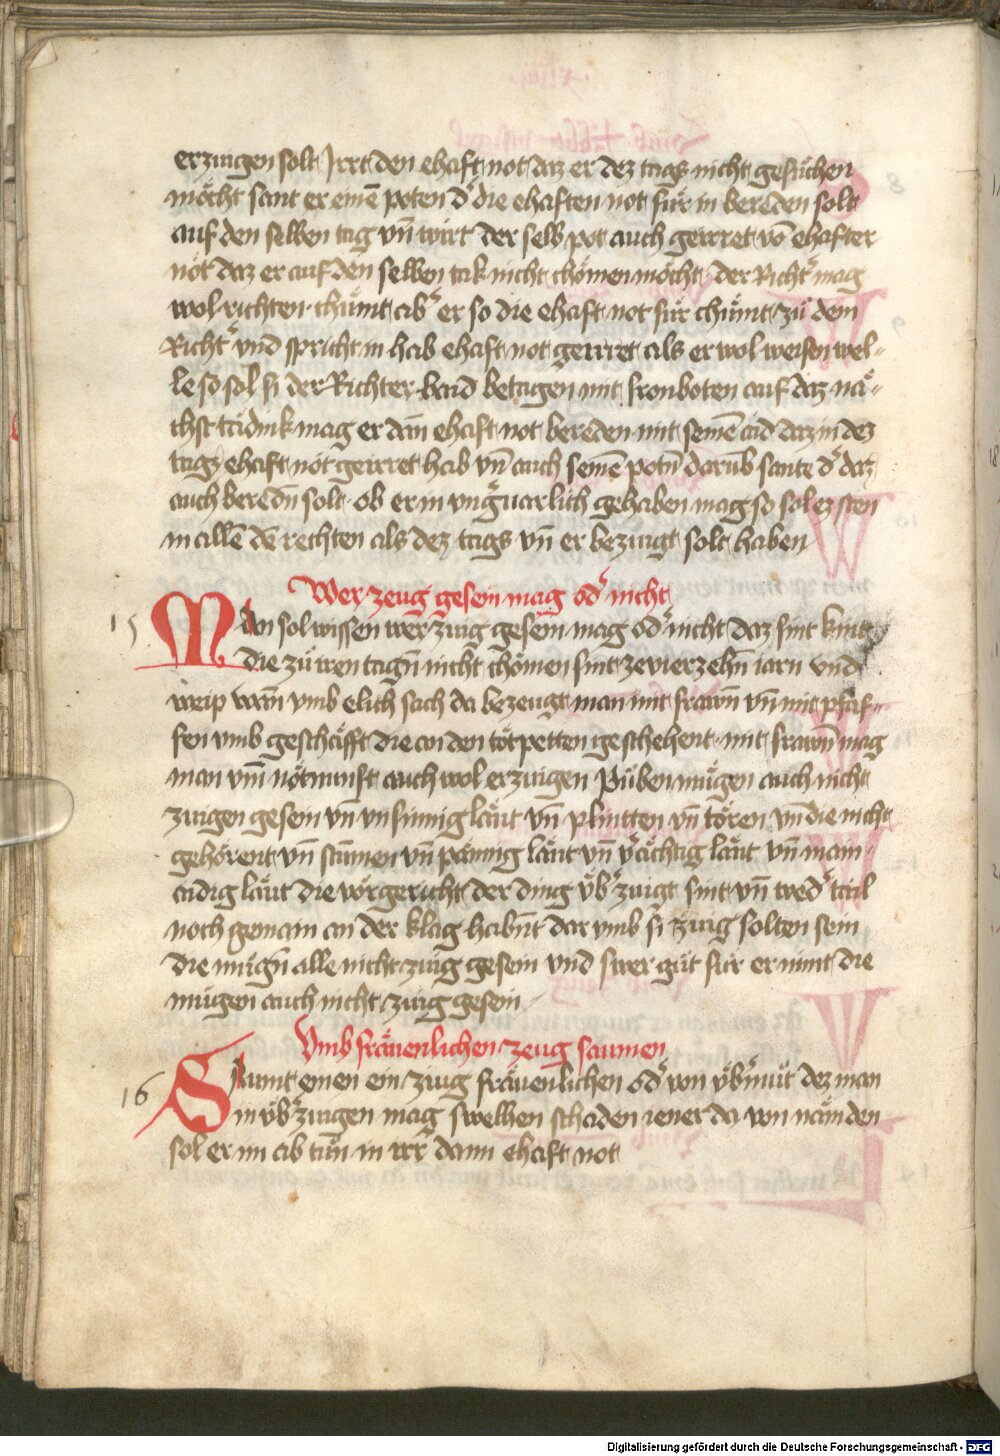 erzingen solt Irrt den ehaft not daz er dez tags nicht gesuͤchen
moͤcht sant er einē poten d' die ehaften not fuͤr in bereden solt
auf den selben tag vn̄ wirt der selb pot auch geirret vō ehafter
not daz er auf den selben tak nicht choͤmen moͤcht der Richt' mag
wol richten chuͤmt ab' er so die ehaft not fuͤr chuͤmt zu dem
Richt' vnd spricht in hab ehaft not geirret als er wol weisen wel-
le so sol si der Richter baid betagen mit fronboten auf daz naͤ-
chst taͤdink mag er dan̄ ehaft not bereden mit seinē aid daz in dez
tags ehaft not geirret hab vn̄ auch seinē potn̄ darūb sante d' daz
auch beredn̄ solt ob er in vng'uarlich gehaben mag so sol er sten
in allē dē rechten als dez tags vn̄ er bezuigt solt haben
Wer zeug gesein mag od' nicht
15 Man sol wissen wer zuig gesein mag od' nicht daz sint kint
die zu iren tagn̄ nicht choͤmen sint ze vierzehn̄ iarn vnd
weip wan̄ vmb elich sach da bezeugt man mit frawn̄ vn̄ mit pfaf-
fen vmb geschaͤfft die an den totpetten geschehent mit frawn̄ mag
man vm̄ notnunft auch wol erzuigen Puͤben muͤgen auch nicht
zuigen gesein vn̄ vnsinnig laͤut vn̄ plintten vn̄ toren vn̄ die nicht
gehoͤrent vn̄ stum̄en vn̄ paͤnnig laͤut vn̄ v'aͤchtig laͤut vn̄ main-
aidig laͤut die vor gericht der ding uͤb'zuigt sint vn̄ wed' tail
noch gemain an der klag habn̄t dar vmb si zuig solten sein
die muͤgn̄ alle nicht zuig gesein vnd swer guͤt fuͤr er nimt die
muͤgen auch nicht zuig gesein
Vmb fraͤuenlichen zeug saumen
16 Saumt einen ein zuig fraͤuenlichen od' von uͤb'muͤt dez man
in uͤb'zuigen mag swelhen schaden iener da von naͤm den
sol er im ab tuͤn in irr dann ehaft not
Digitalisierung gefördert durch die Deutsche Forschungsgemeinschaft - DFG